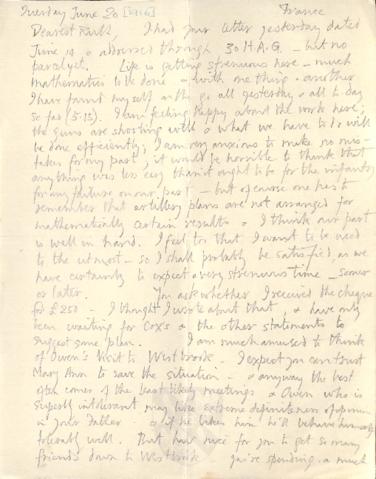 Tuesday June 20 [1916] France
Dearest Ruth, I had your letter yesterday dated
June 15 & addressed through 30 H.A.G. – but no
parcel yet. Life is getting strenuous here – much
mathematics to be done & with one thing & another
I have found myself on the go all yesterday & all to day
so far (5.15). I am feeling happy about the work here;
the guns are shooting well & what we have to do will
be done efficiently; I am very anxious to make no mis-
takes for my part; it would be horrible to think that
anything was less easy than it ought to be for the infantry
for any failure on our part – but of course one has to
remember that artillery plans are not arranged for
mathematically certain results & I think our part
is well in hand. I feel too that I want to be used
to the utmost – so I shall probably be satisfied, as we
have certainly to expect a very strenuous time – sooner
or later. You ask whether I received the cheque
for £250 – I thought I wrote about that, & have only
been waiting for Cox's & the other statements to
suggest some plan. I am much amused to think
of Owen's visit to Westbrook. I expect you can trust
Mary Ann to save the situation – & anyway the best
often comes of the least likely meetings & Owen who is
superbly intolerant may like extreme definiteness of opinion
in your Father & if he likes him he'll behave himself
tolerably well. But how nice for you to get so many
friends down to Westbrook You're spending a much